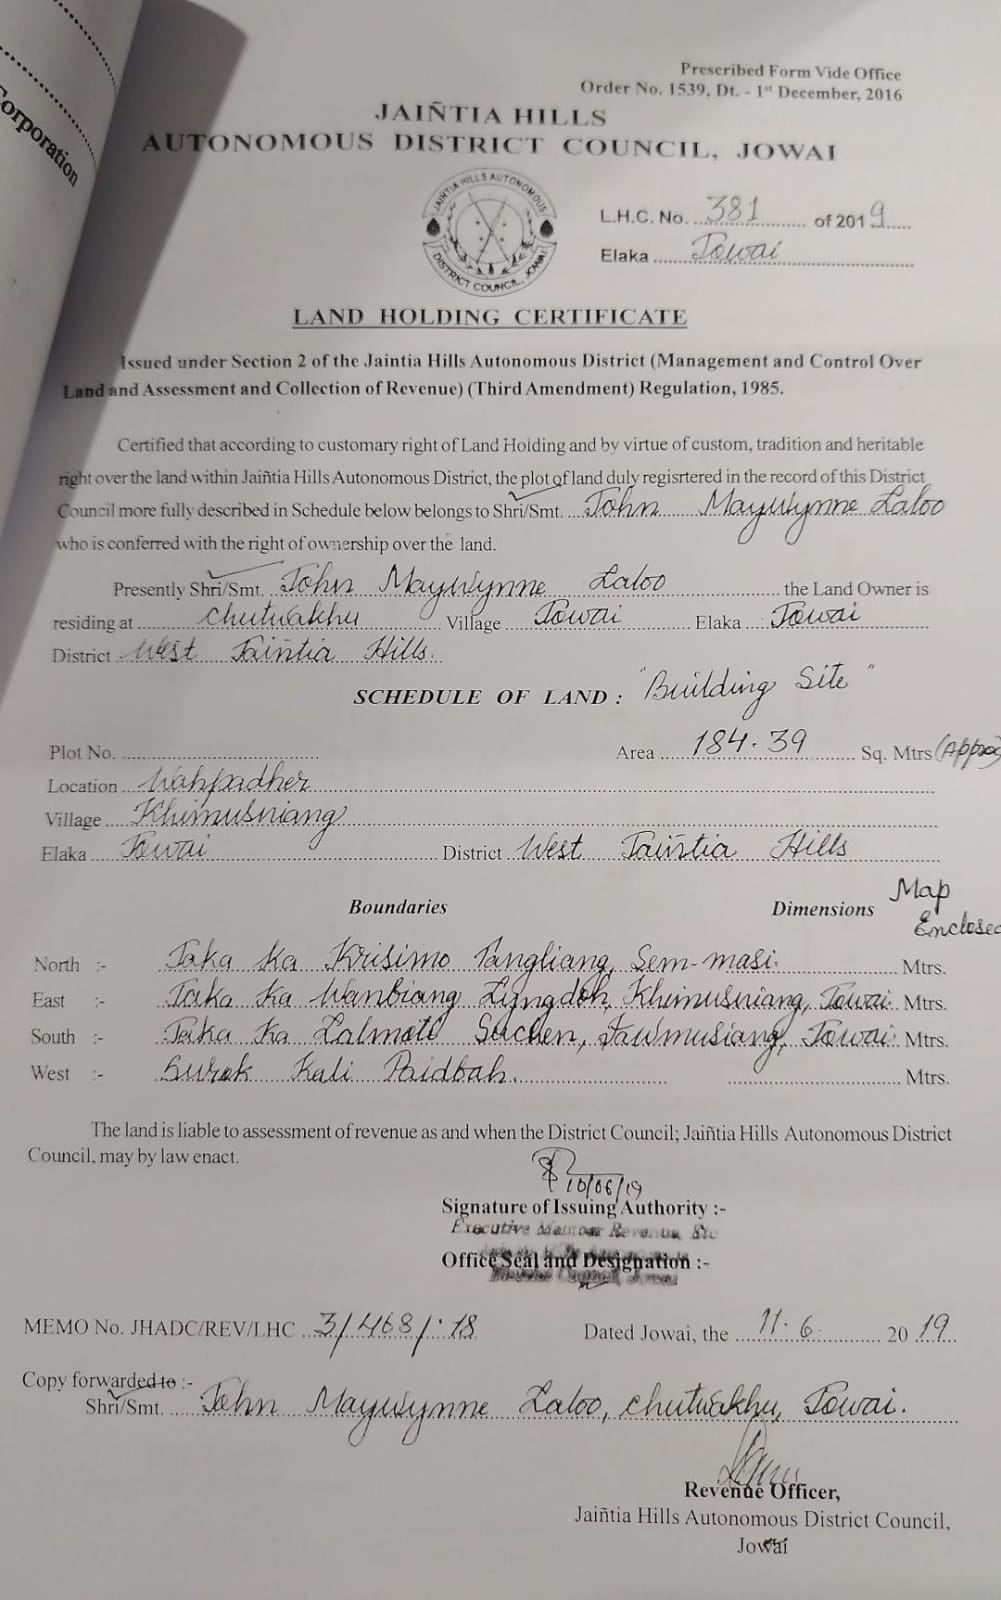 Corporation
Prescribed Form Vide Office
Order No. 1539, Dt. - 1st December, 2016
JAIÑTIA HILLS
AUTONOMOUS DISTRICT COUNCIL, JOWAI
JAIÑTIA HILLS AUTONOMOUS
DISTRICT COUNCIL, JOWAI
L.H.C. No. 381 of 2019
Elaka Jowai
LAND HOLDING CERTIFICATE
Issued under Section 2 of the Jaintia Hills Autonomous District (Management and Control Over
Land and Assessment and Collection of Revenue) (Third Amendment) Regulation, 1985.
Certified that according to customary right of Land Holding and by virtue of custom, tradition and heritable
right over the land within Jaiñtia Hills Autonomous District, the plot of land duly regisrtered in the record of this District
Council more fully described in Schedule below belongs to Shri/Smt. John Maywynne Laloo
who is conferred with the right of ownership over the land.
Presently Shri/Smt. John Maywynne Laloo the Land Owner is
residing at Chutwakhu Village Jowai Elaka Jowai
District West Jaiñtia Hills.
SCHEDULE OF LAND : "Building Site"
Plot No. Area 184.39 Sq. Mtrs (Approx
Location Wahpadher
Village Khimusniang
Elaka Jowai District West Jaiñtia Hills
Boundaries Dimensions Map
Enclosed
North :- Jaka Ka Krisimo Pangliang, Sem-masi. Mtrs.
East :- Jaka Ka Wanbiang Lyngdoh, Khimusniang, Jowai. Mtrs.
South :- Jaka Ka Lalmote Suchen, Iawmusiang, Jowai. Mtrs.
West :- Surok Kali Paidbah. Mtrs.
The land is liable to assessment of revenue as and when the District Council; Jaiñtia Hills Autonomous District
Council, may by law enact.
10/06/19
Signature of Issuing Authority :-
Executive Member Revenue, Etc
Office Seal and Designation :-
MEMO No. JHADC/REV/LHC 3/468/'18 Dated Jowai, the 11.6. 2019
Copy forwarded to :-
Shri/Smt. John Maywynne Laloo, Chutwakhu, Jowai.
Revenue Officer,
Jaiñtia Hills Autonomous District Council,
Jowai